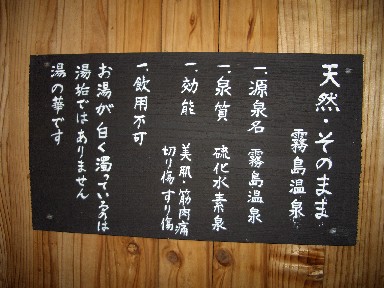 天然・そのまま
霧島温泉
一、源泉名 霧島温泉
一、泉質 硫化水素泉
一、効能 美肌 筋肉痛
切り傷 すり傷
一、飲用不可
お湯が白く濁っているのは
湯垢ではありません
湯の華です